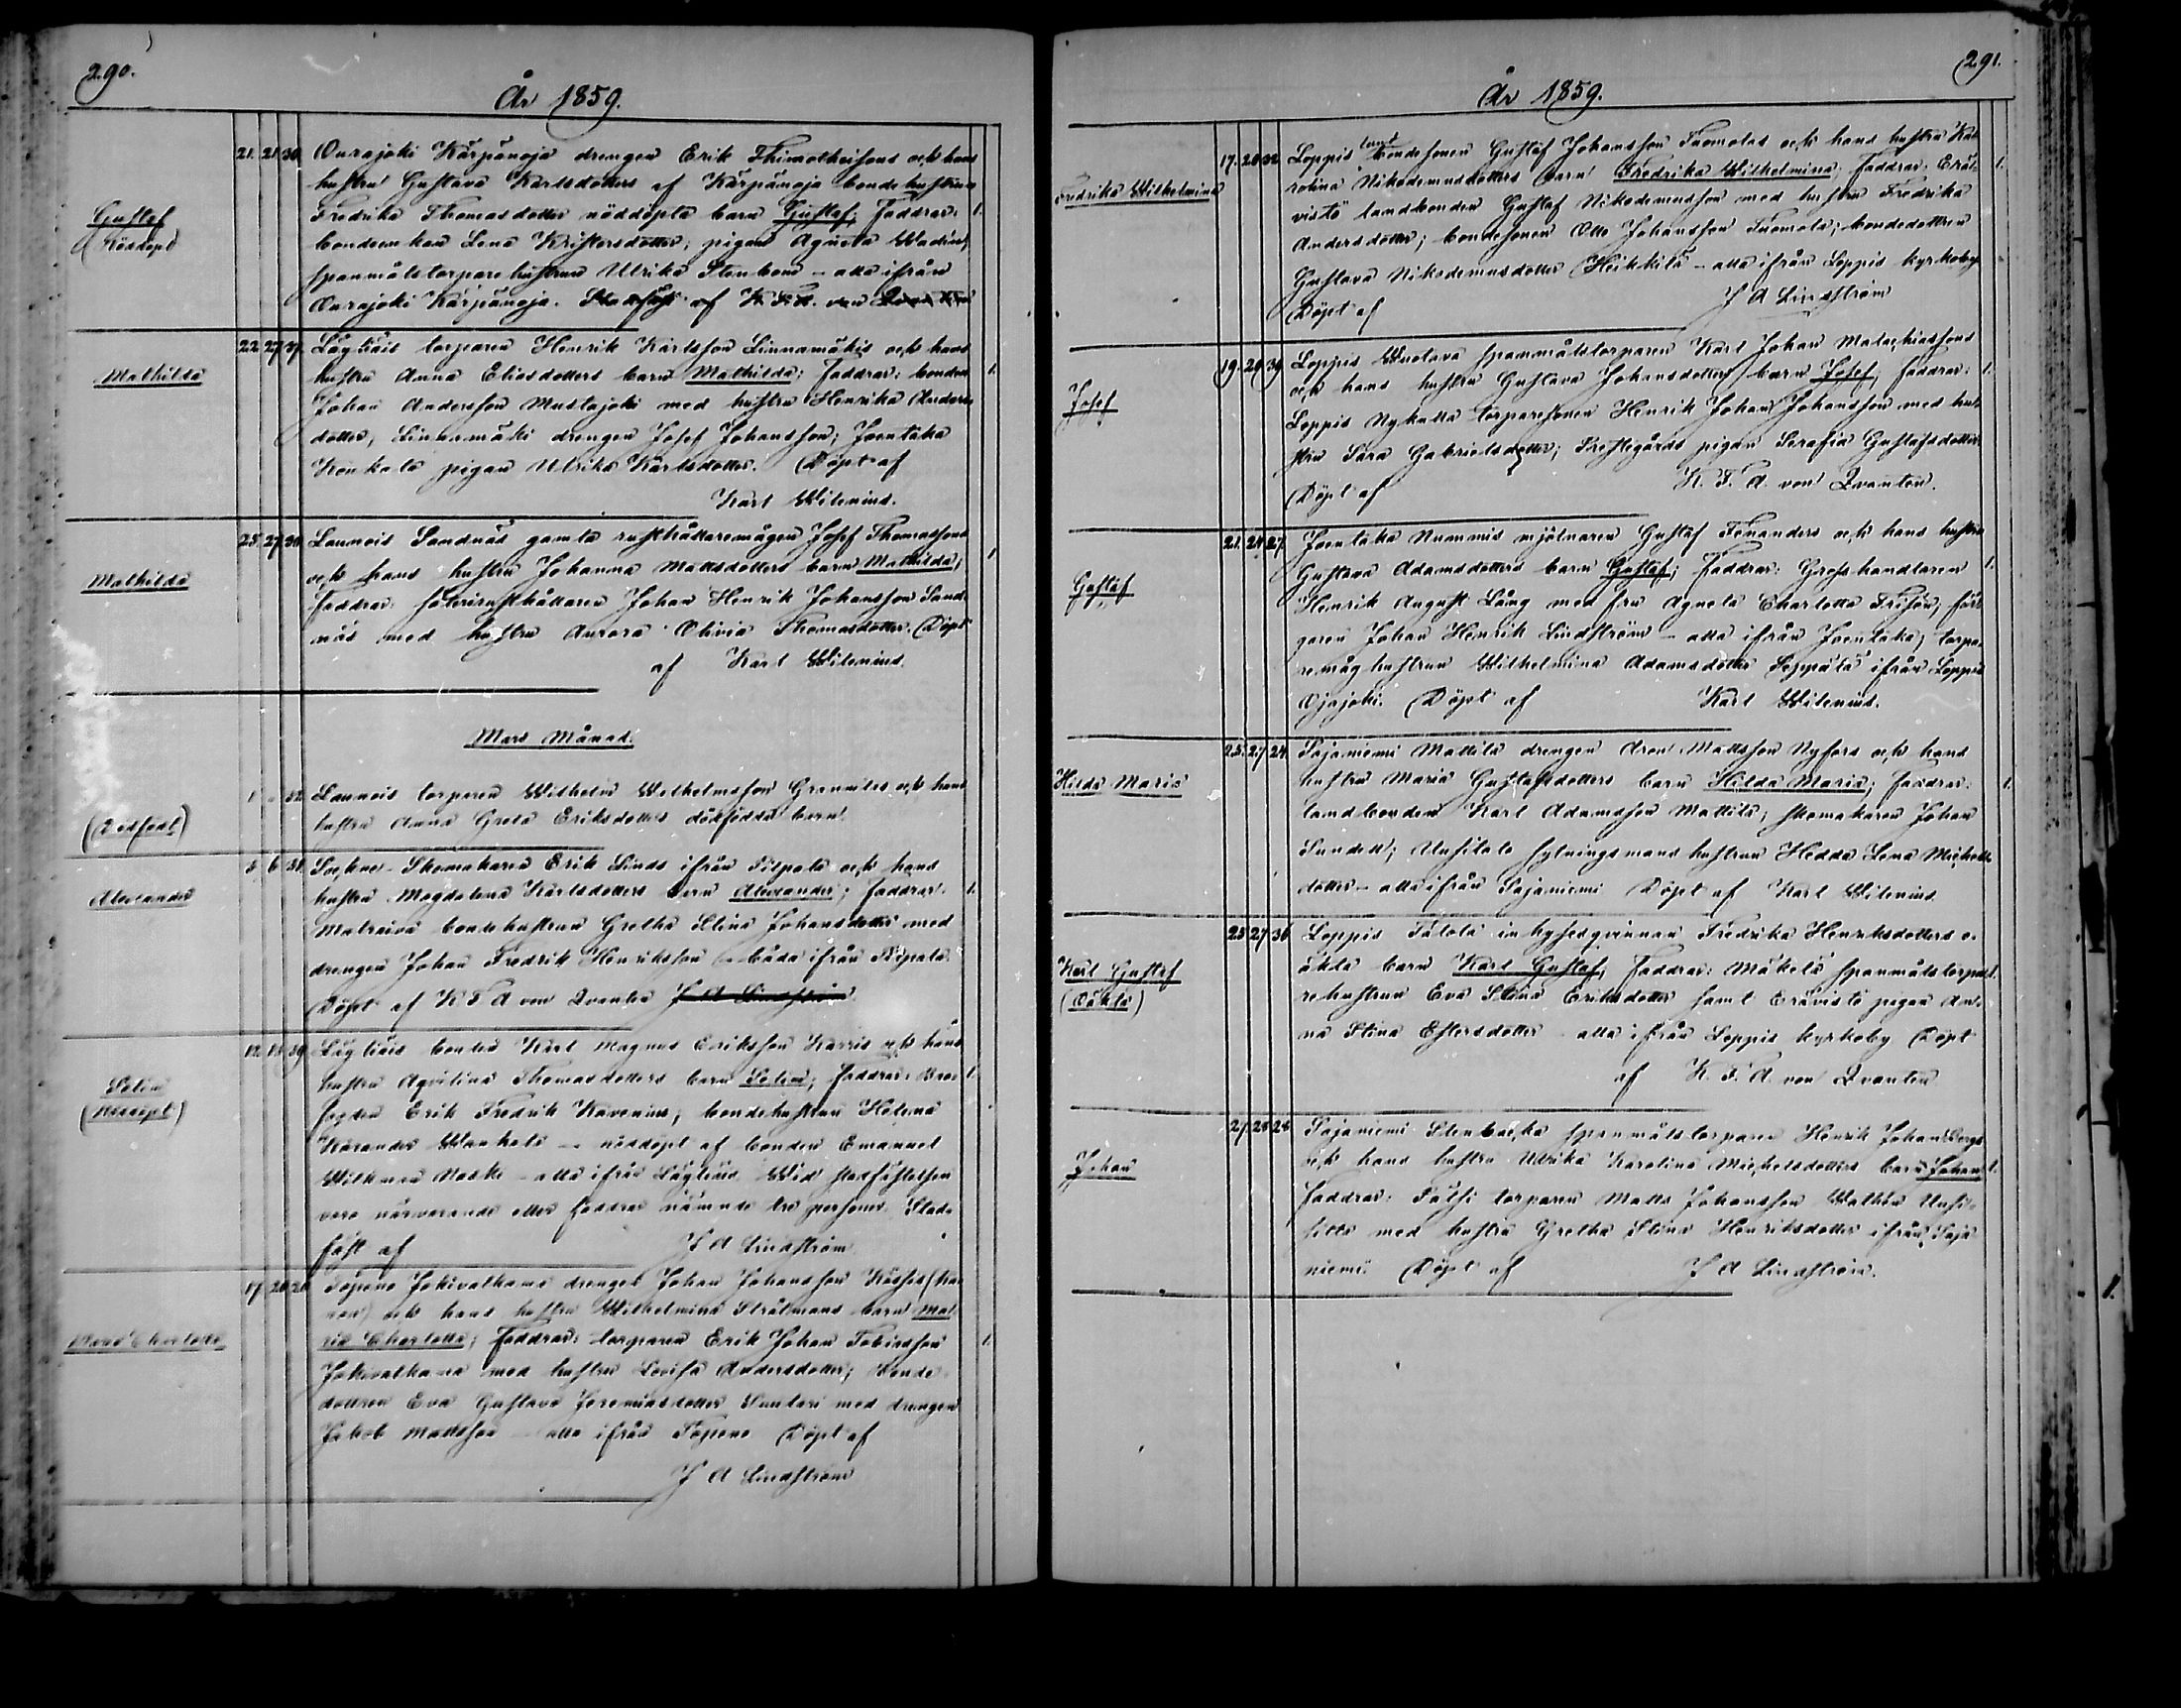 290.
År 1859.
Gustaf
Nöddöpt
21. 21. 30. Ourajoki Kärpänoja drengen Erik Thimotheisons och hans
hustru Gustava Karlsdotters af Kärpänoja bondehustrun
Fredrika Thomasdotter nöddöpta barn Gustaf; Faddrar: 1.
bondeenkan Lena Kristersdotter; pigan Agneta Wadin;
spanmålstorpare hustrun Ulrika Stenbom – alla ifrån
Ourajoki Kärpänoja. Stadfäst af K. F. A. von
Mathilda
22. 27. 37. Läyliäis torparen Henrik Karlsson Linnamäkis och hans
hustru Anna Eliædotters barn Mathilda; Faddrar: bonden 1.
Johan Andersson Mustajoki med hustru Henrika Anders-
dotter; Linnamäki drengen Josef Johansson; Joentaka
Konkala pigan Ulrika Karlsdotter. Döpt af
Karl Wilenius.
Mathilda
25. 27. 30. Launois Sandnäs gamla rusthållaremågen Josef Thomassons
och hans hustru Johanna Mattsdotters barn Mathilda; 1.
Faddrar: säterirusthållaren Johan Henrik Johansson Sand-
näs med hustru Aurora Olivia Thomasdotter. Döpt
af Karl Wilenius.
Mars Månad.
(Dödfödt)
1. – 32. Launois torparen Wilhelm Wilhelmsson Grannilas och hans
hustru Anna Greta Eriksdotters dödfödda barn.
Alexander
3. 6. 31. Sockne-Skomakaren Erik Linds ifrån Pilpala och hans
hustru Magdalena Karlsdotters barn Alexander; Faddrar: 1.
Matraiva bondehustrun Gretha Stina Johansdotter med
drengen Johan Fredrik Henriksson – båda ifrån Pilpala.
Döpt af K F A von Qvanten J A Lindström
Selim
(Nöddöpt)
12. 13. 39. Läyliäis bonden Karl Magnus Eriksson Karris och hans
hustru Aqvilina Thomasdotters barn Selim; Faddrar: Bro- 1.
fogden Erik Fredrik Kavenius; bondehustrun Helena
Karander Wankala – nöddöpt af bonden Emanuel
Wilkman Naski – alla ifrån Läyliäis. Wid stadfästelsen
voro närvarande etter faddrar nämnde tre personer. Stad-
fäst af J A Lindström.
Maria Charlotta
17. 20. 20. Topeno Jokivalkama drengen Johan Johansson
och hans hustru Wilhelmina Strålmans barn Ma-
ria Charlotta; Faddrar: torparen Erik Johan Tobiasson 1.
Jokivalkama med hustru Lovisa Andersdotter; bonde-
dottren Eva Gustava Jeremiasdotter Santari med drengen
Jakob Mattsson – alla ifrån Topeno Döpt af
J A Lindström
291.
År 1859.
Fredrika Wilhelmina
17. 20. 22. Loppis land bondesonen Gustaf Johansson Tuomolas och hans hustru Ka-
rolina Nikodemusdotters barn Fredrika Wilhelmina; Faddrar: Erä- 1.
vistö landbonden Gustaf Nikodemusson med hustru Fredrika
Andersdotter; bondesonen Otto Johansson Tuomola; bondedottren
Gustava Nikodemusdotter Heikkilä – alla ifrån Loppis kyrkoby.
Döpt af J A Lindström
Josef
19. 20. 39. Loppis Wuotava spanmålstorparen Karl Johan Malachiassons
och hans hustru Gustava Johansdotters barn Josef; Faddrar: 1.
Loppis Nykulla torparesonen Henrik Johan Johansson med hu-
stru Sara Gabrielsdotter; Prestegårds pigan Serafia Gustafsdotter.
Döpt af K. F. A. von Qvanten.
Gustaf
21. 24. 27. Joentaka Nummis mjölnaren Gustaf Fenanders och hans hustru
Gustava Adamsdotters barn Gustaf; Faddrar: Grofshandlaren 1.
Henrik August Lång med fru Agneta Charlotta Frisén; fär-
garen Johan Henrik Lindström – alla ifrån Joentaka; torpa-
remåg hustrun Wilhelmina Adamsdotter Seppälä ifrån Loppis
Ojajoki. Döpt af Karl Wilenius.
Hilda Maria
25. 27. 24. Sajaniemi Mattila drengen Aron Mattsson Nyfors och hans
hustru Maria Gustafsdotters barn Hilda Maria; Faddrar: 1.
landbonden Karl Adamsson Mattila; skomakaren Johan
Sundell; Uusitalo hytningsmans hustrun Hedda Lena Michels-
dotter – alla ifrån Sajaniemi Döpt af Karl Wilenius
Karl Gustaf
(Oäkta)
23. 27. 36. Loppis Talola inhyseqvinnan Fredrika Henriksdotters o-
äkta barn Karl Gustaf; Faddrar: Mäkelä spanmålstorpa- 1.
rehustrun Eva Stina Eriksdotter samt Erävistö pigan An-
na Stina Estersdotter – alla ifrån Loppis kyrkoby Döpt
af K. F. A. von Qvanten
Johan
27. 28. 28. Sajaniemi Stenbacka spanmålstorparen Henrik Johan Bergs
och hans hustru Ulrika Karolina Michelsdotters barn Johan 1.
Faddrar: Tälsi torparen Matts Johansson Wathén Uusi-
sillo med hustru Gretha Stina Henriksdotter ifrån Saja-
niemi. Döpt af J A Lindström.
1.